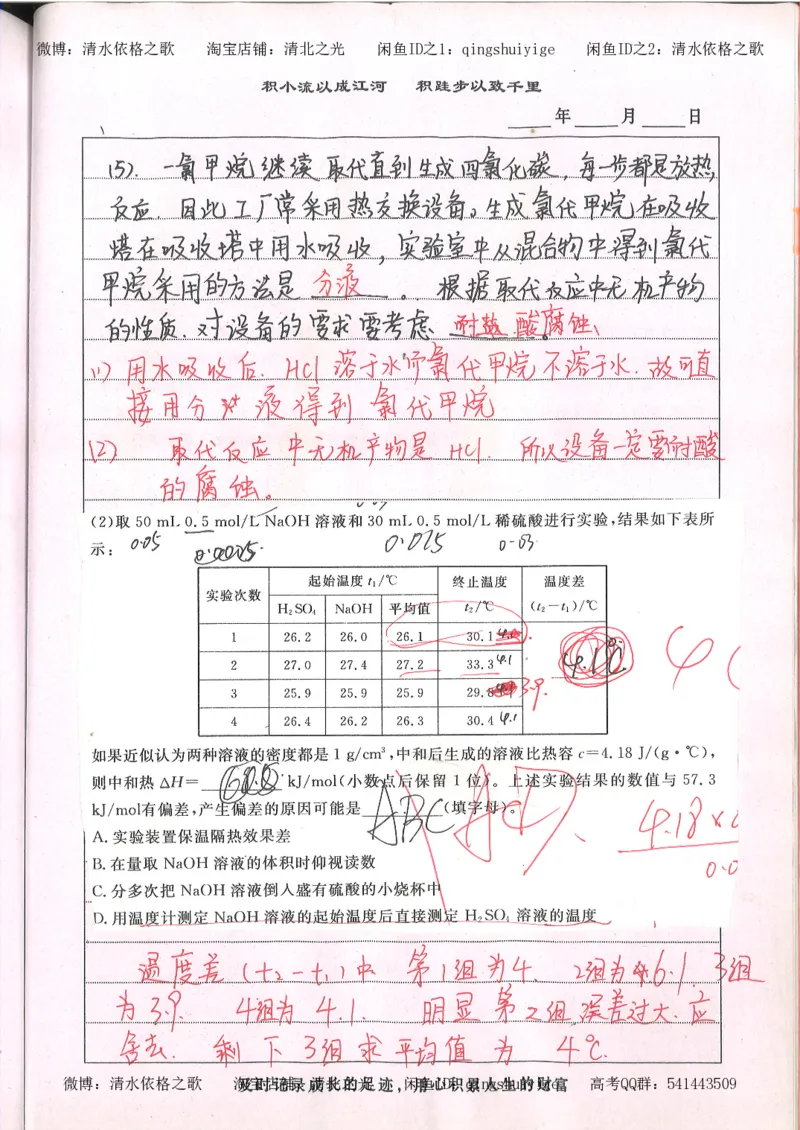 微博：清水依格之歌 淘宝店铺：清北之光 闲鱼ID之1：qingshuiyige 闲鱼ID之2：清水依格之歌
积小流以成江河 积跬步以致千里
年 月 日
(5). 一氯甲烷继续取代直到生成四氯化碳，每一步都是放热
反应. 因此工厂常采用热交换设备。生成氯代甲烷在吸收
塔在吸收塔中用水吸收，实验室中从混合物中得到氯代
甲烷采用的方法是 分液 。根据取代反应中无机产物
的性质. 对设备的要求需考虑 耐盐酸腐蚀、
(1) 用水吸收后. HCl 溶于水而氯代甲烷不溶于水. 故可直
接用分液得到氯代甲烷
(2) 取代反应中无机产物是 HCl. 所以设备一定要耐酸
的腐蚀。
(2)取 50 mL 0.5 mol/L NaOH 溶液和 30 mL 0.5 mol/L 稀硫酸进行实验,结果如下表所
示: 0.05 0.0025 0.015 0.03
实验次数 起始温度 t₁/℃ 终止温度 温度差
H₂SO₄ NaOH 平均值 t₂/℃ (t₂－t₁)/℃
1 26.2 26.0 26.1 30.1
2 27.0 27.4 27.2 33.3 4.1 4.1℃
3 25.9 25.9 25.9 29. 3.9.
4 26.4 26.2 26.3 30.4 4.1
如果近似认为两种溶液的密度都是 1 g/cm³,中和后生成的溶液比热容 c=4.18 J/(g·℃),
则中和热 ΔH= kJ/mol(小数点后保留 1 位)。上述实验结果的数值与 57.3
kJ/mol有偏差,产生偏差的原因可能是 ABC (填字母)。 ACD、 4.18×
A. 实验装置保温隔热效果差 0.0
B. 在量取 NaOH 溶液的体积时仰视读数
C. 分多次把 NaOH 溶液倒入盛有硫酸的小烧杯中
D. 用温度计测定 NaOH 溶液的起始温度后直接测定 H₂SO₄ 溶液的温度
温度差 (t₂-t₁) 中 第1组为4. 2组为6.1. 3组
为 3.9. 4组为 4.1. 明显第2组误差过大. 应
舍去. 剩下3组求平均值为 4℃.
微博：清水依格之歌 及时记录成长的足迹，用心积累人生的财富 高考QQ群：541443509